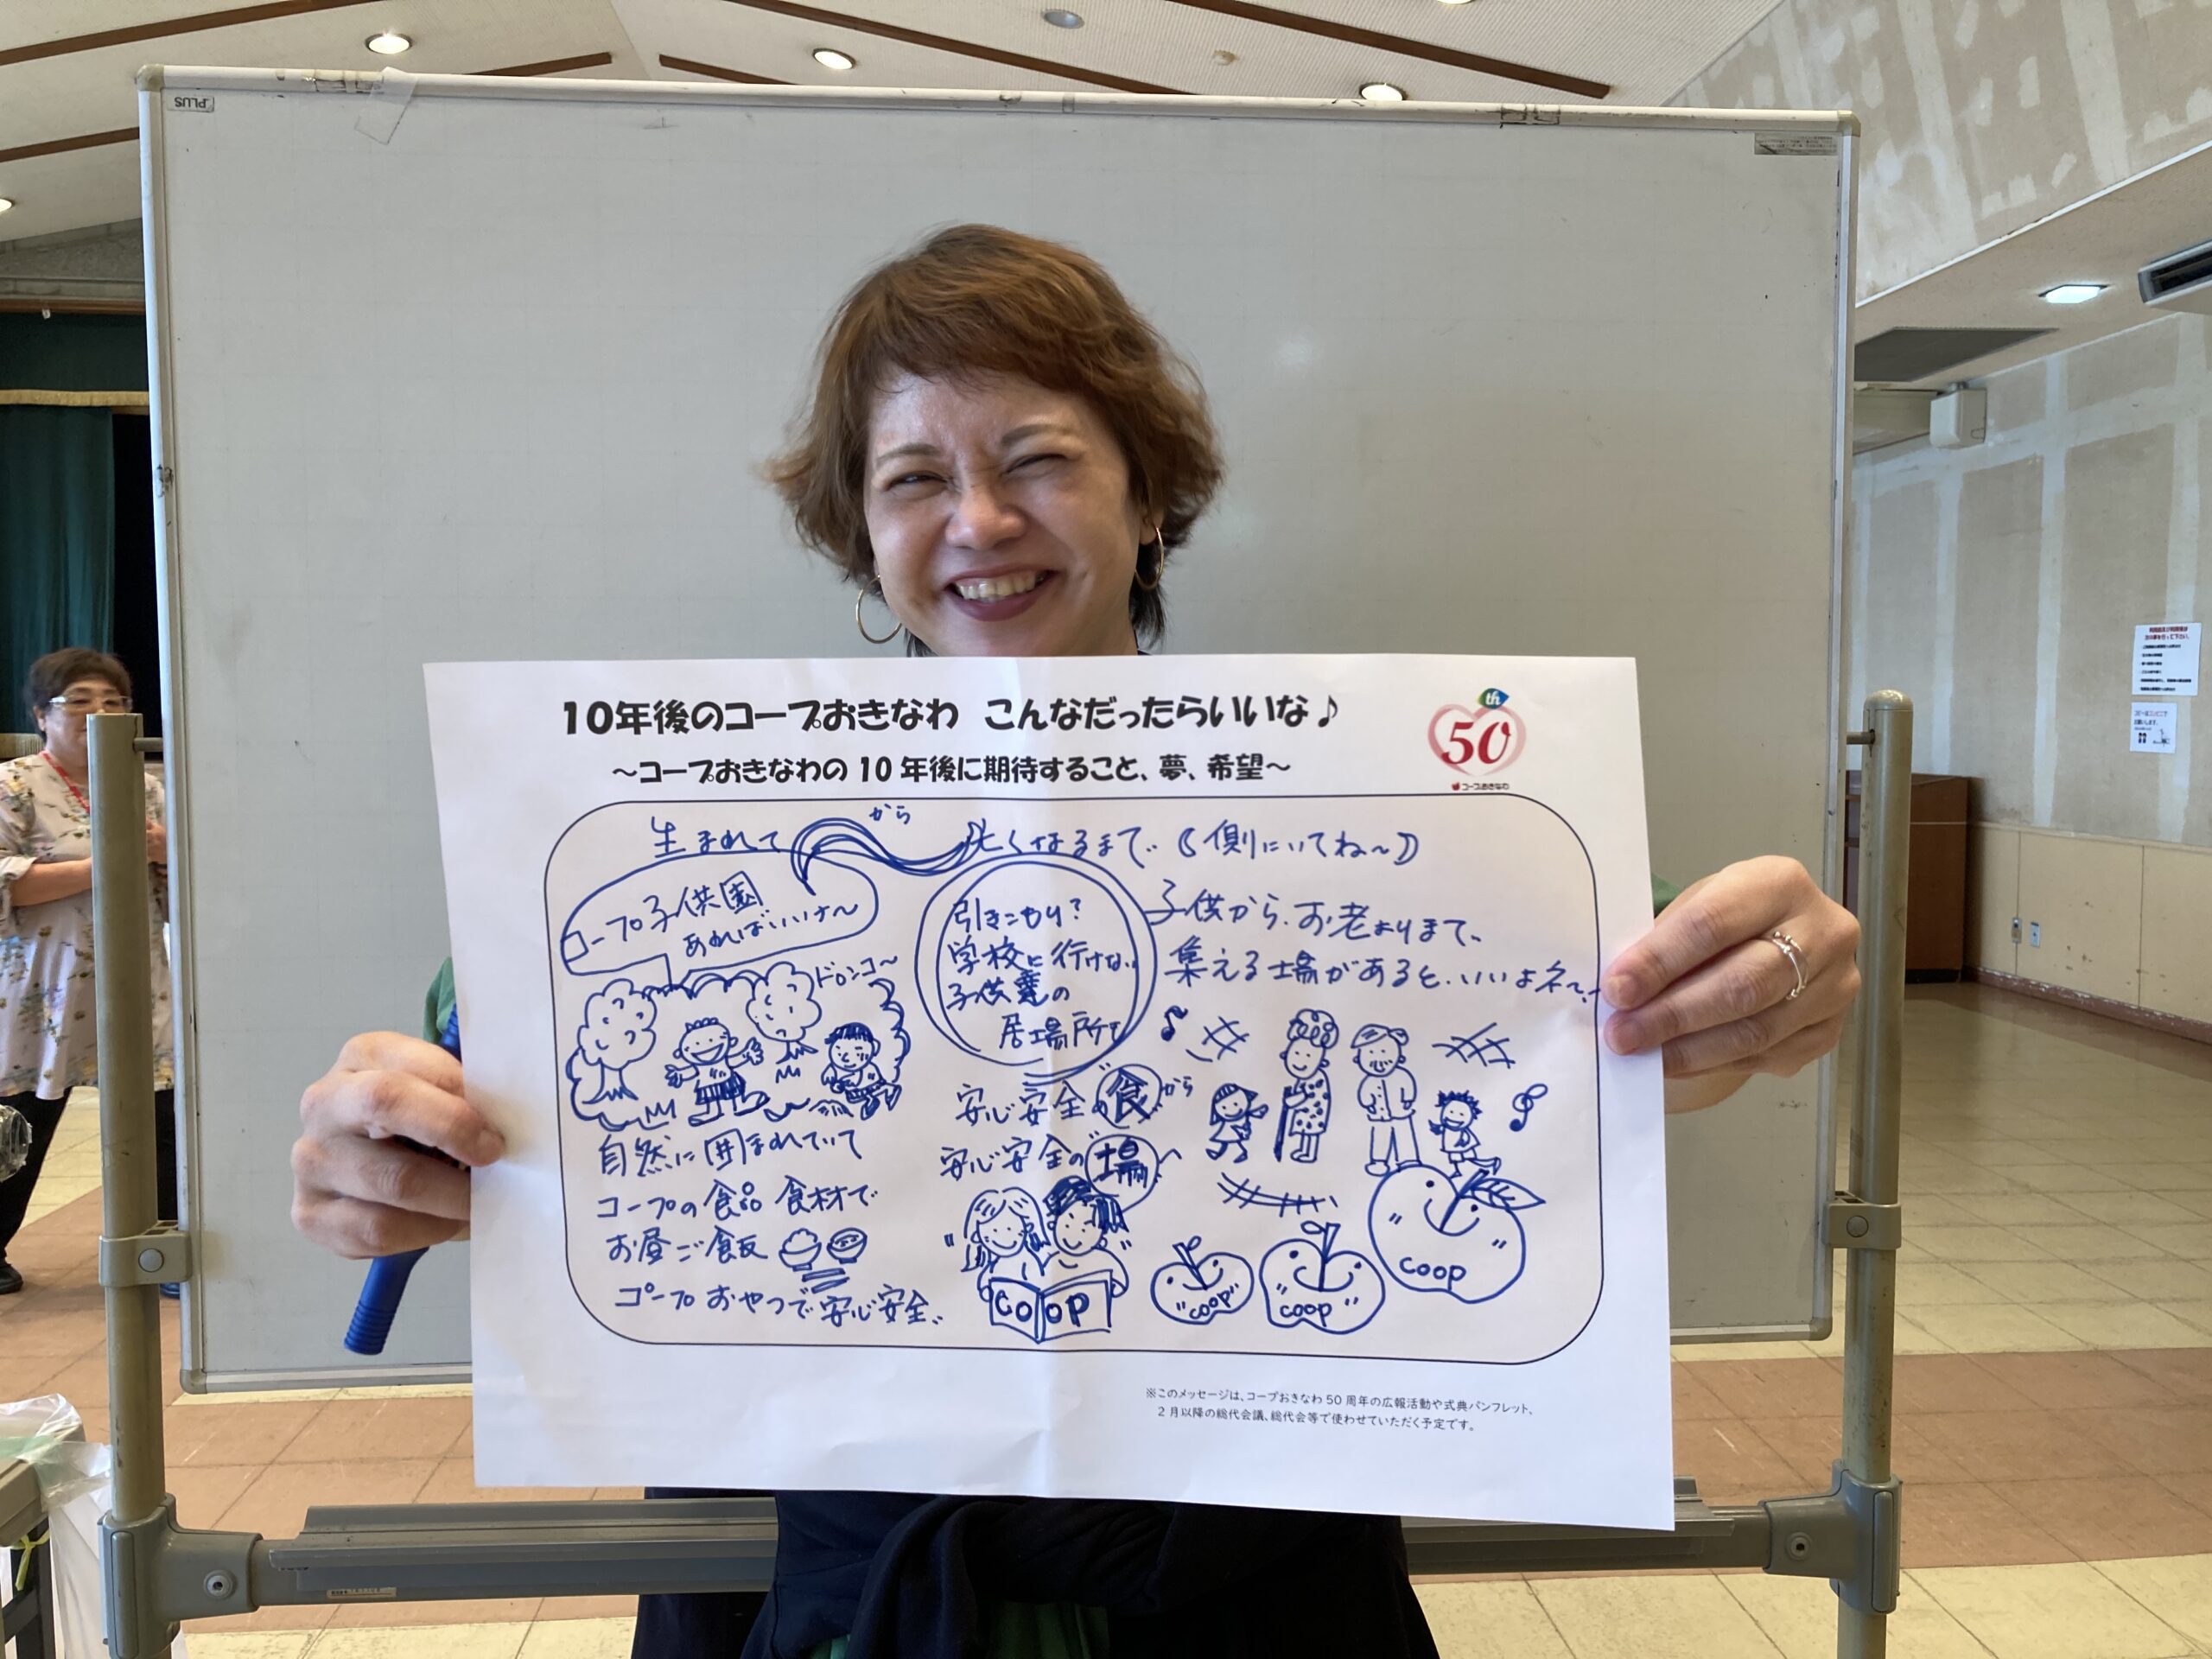 PLUS
10年後のコープおきなわ こんなだったらいいな♪
～コープおきなわの10年後に期待すること、夢、希望～
th
50
コープおきなわ
生まれて から 亡くなるまで。(側にいてね～)
コープ子供園
あればいいナ～
ドロンコ～
自然に囲まれていて
コープの食品 食材で
お昼ご飯
コープおやつで安心安全。
引きこもり?
学校に行けない
子供達の
居場所も
安心安全の食から
安心安全の場へ
COOP
子供から、お老よりまで、
集える場があると、いいよネ～
coop
coop
coop
※このメッセージは、コープおきなわ50周年の広報活動や式典パンフレット、
2月以降の総代会議、総代会等で使わせていただく予定です。